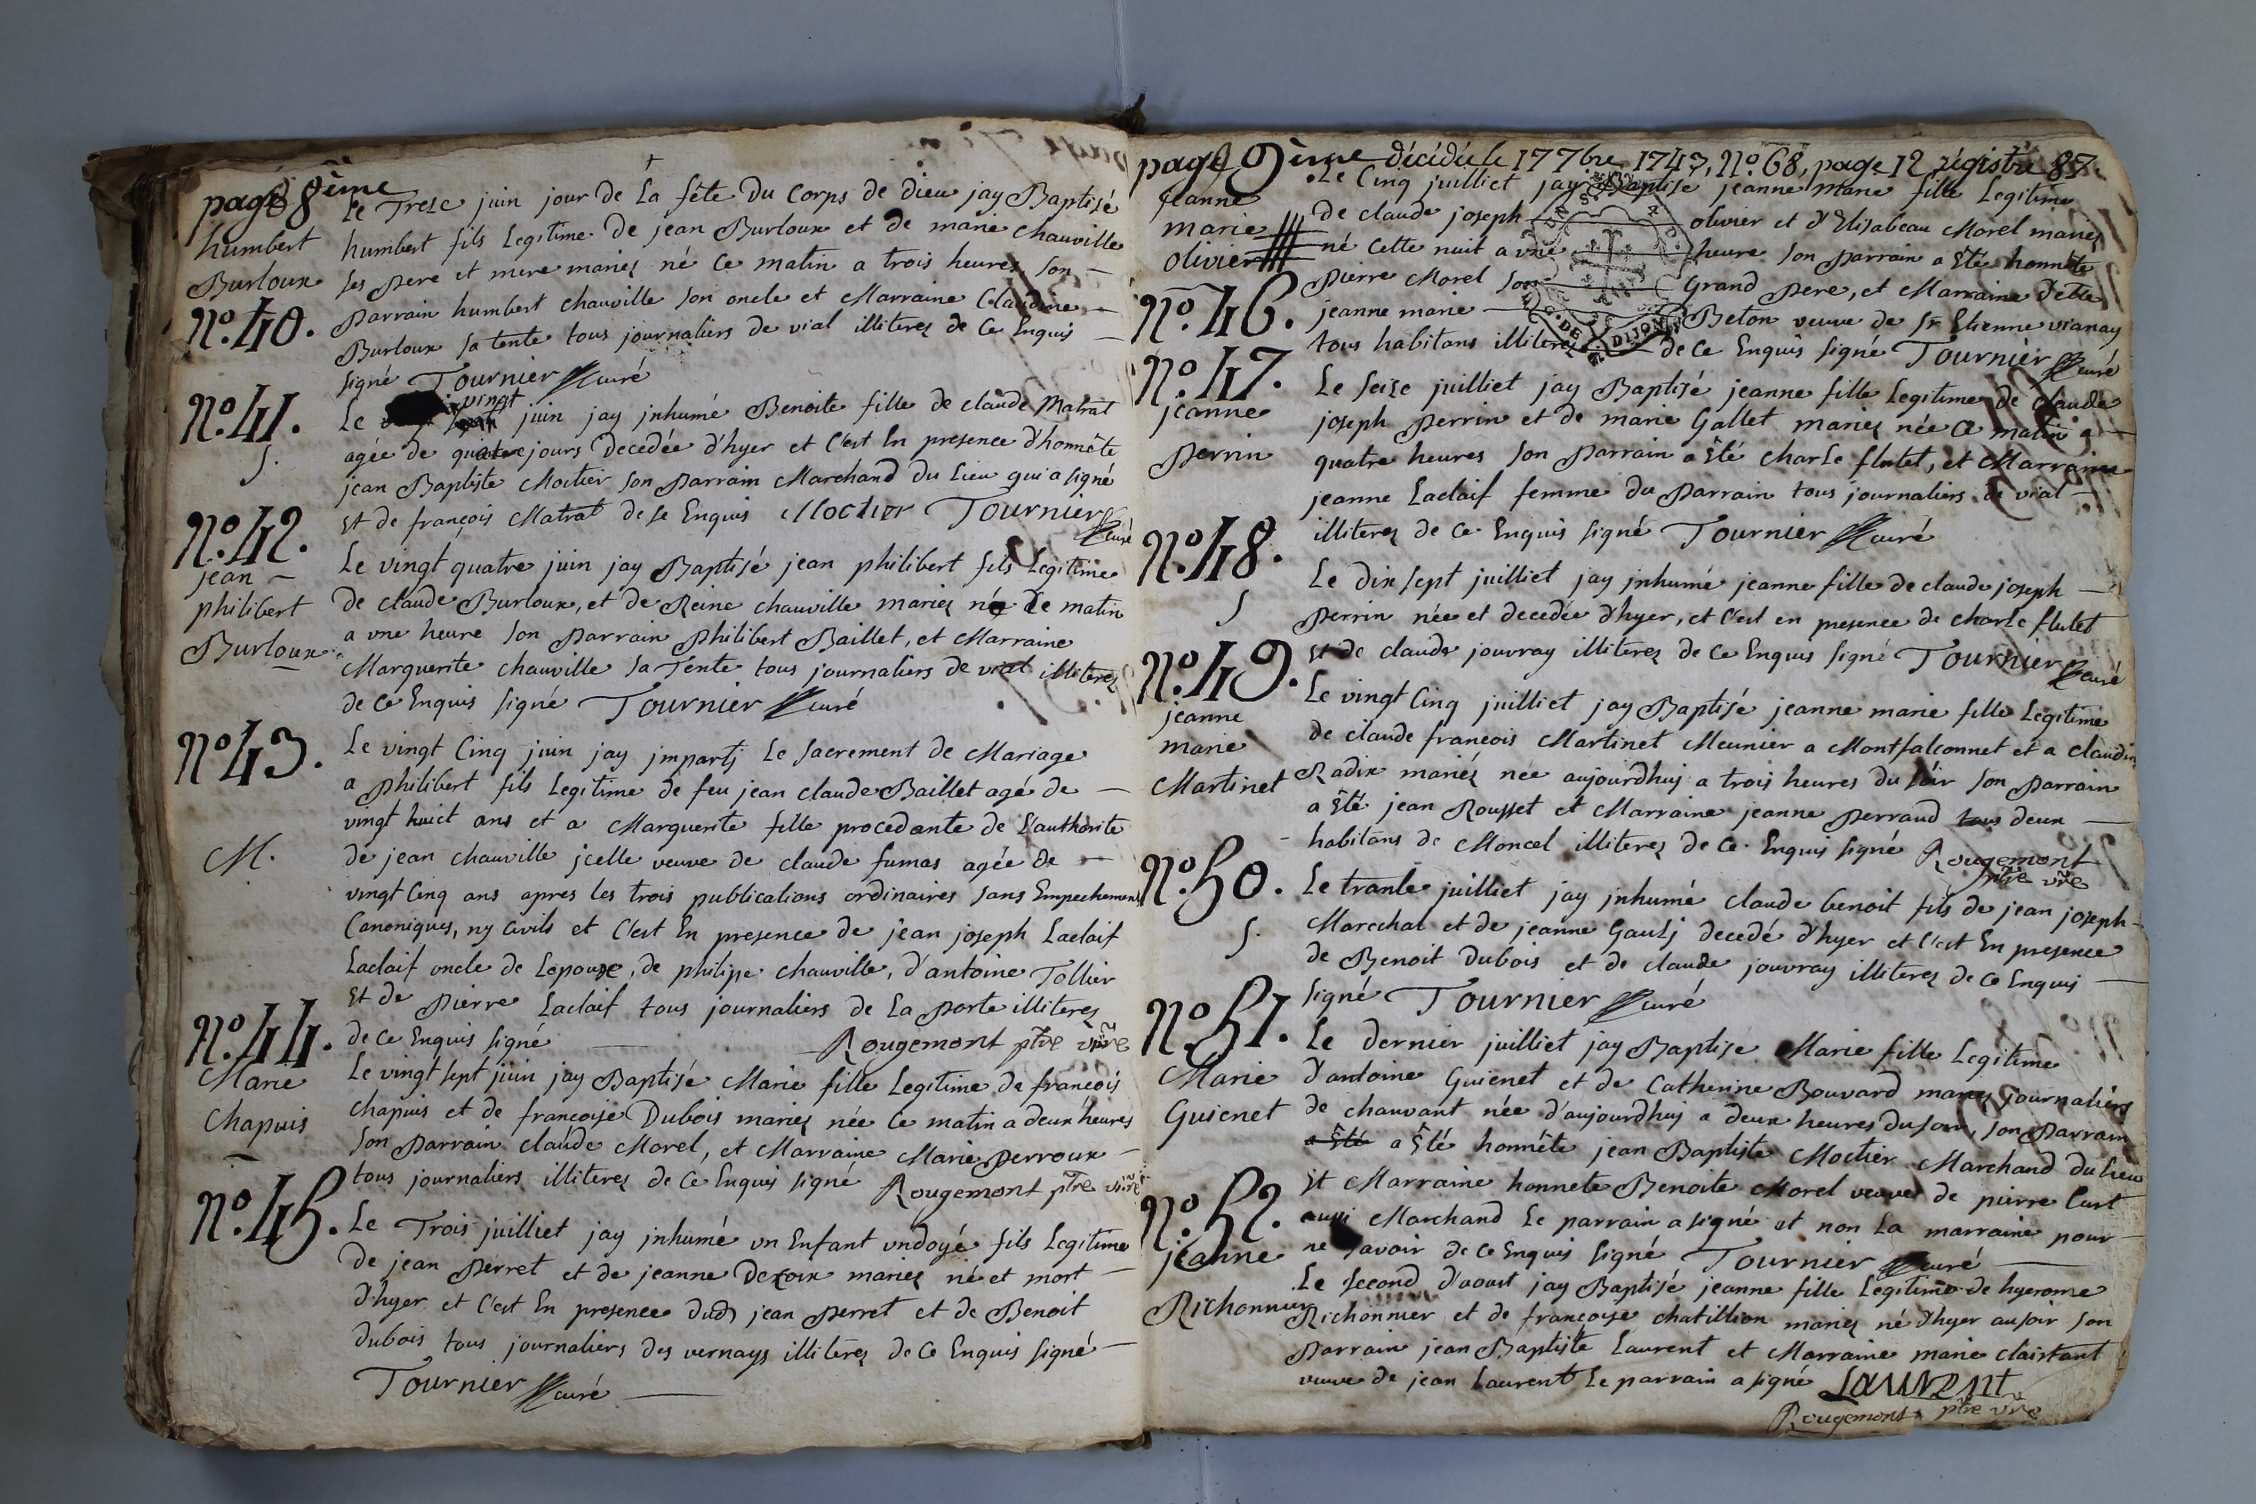 page 8ème
humbert
Burloux
N.o 40.
Le Treze juin jour de La fête du Corps de dieu jay Baptisé
humbert fils Legitime de jean Burloux et de marie chauville
ses pere et mere mariez né Ce matin a trois heures son
parrain humbert chauville son oncle et Marraine Claudine
Burloux sa tente tous journaliers de vial illiterez de Ce Enquis
signé Tournier curé
N.o 41.
S.
Le vingt juin jay jnhumé Benoite fille de claude Matrat
agée de quatre jours Decedée d'hyer et C'est En presence d'honnête
jean Baptiste Moctier son parrain Marchand du Lieu qui a signé
Et de françois Matrat de se Enquis Moctier Tournier curé
N.o 42.
jean
philibert
Burloux
Le vingt quatre juin jay Baptisé jean philibert fils Legitime
de claude Burloux, et de Reine chauville mariez né Ce matin
a vne heure son parrain philibert Baillet, et Marraine
Marguerite chauville sa Tente tous journaliers de vial illiterez
de Ce Enquis signé Tournier curé
N.o 43.
M.
Le vingt Cinq juin jay jmparti Le sacrement de Mariage
a philibert fils Legitime de feu jean claude Baillet agé de
vingt huict ans et a Marguerite fille procedante de L'authorite
de jean chauville jcelle veuve de claude fumas agée de
vingt Cinq ans apres les trois publications ordinaires sans Empechemens
Canoniques, ny Civils et C'est En presence de jean joseph Laclaif
Laclaif oncle de Lepouze, de philipe chauville, d'antoine Tollier
Et de pierre Laclaif tous journaliers de La porte illiterez
de Ce Enquis signé Rougemont ptre vire
N.o 44.
Marie
Chapuis
Le vingt sept juin jay Baptisé Marie fille Legitime de françois
chapuis et de françoise Dubois mariez née Ce matin a deux heures
son parrain claude Morel, et Marraine Marie perroux
tous journaliers illiterez de Ce Enquis signé Rougemont ptre vire
N.o 45.
Le Trois juilliet jay jnhumé vn Enfant vndoyé fils Legitime
de jean perret et de jeanne Dezoix mariez né et mort
d'hyer et C'est En presence dud jean perret et de Benoit
dubois tous journaliers des vernays illiterez de Ce Enquis signé
Tournier curé
page 9ème décédée le 17 7bre 1743, N.o 68, page 12 régistre 87
jeanne
marie
olivier
N.o 46.
Le Cinq juilliet jay Baptisé jeanne marie fille Legitime
de claude joseph olivier et d'Elisabeau Morel mariez
né Cette nuit a vne heure son parrain a Eté honnête
pierre Morel son Grand pere, et Marraine dette
jeanne marie Beton veuve de sr Etienne vianay
tous habitans illiterez de Ce Enquis signé Tournier curé
N.o 47.
jeanne
perrin
Le seize juilliet jay Baptisé jeanne fille Legitime de claude
joseph perrin et de marie Gallet mariez née Ce matin a
quatre heures son parrain a Eté charle flutet, et Marraine
jeanne Laclaif femme du parrain tous journaliers de vial
illiterez de Ce Enquis signé Tournier curé
N.o 48.
S
Le dix sept juilliet jay jnhumé jeanne fille de claude joseph
perrin née et decedée d'hyer, et C'est en presence de charle flutet
Et de claude jouvray illiterez de Ce Enquis signé Tournier curé
N.o 49.
jeanne
marie
Martinet
Le vingt Cinq juilliet jay Baptisé jeanne marie fille Legitime
de claude francois Martinet Meunier a Montfalconnet et a Claudine
Radix mariéz née aujourdhuj a trois heures du soir son parrain
a Eté jean Rousset et Marraine jeanne perraud tous deux
habitans de Moncel illiterez de Ce Enquis signé Rougemont
ptre vre
N.o 50.
S.
Le trante juilliet jay jnhumé claude benoit fils de jean joseph
Marechal et de jeanne Gaulj decedé d'hyer et C'est En presence
de Benoit Dubois et de claude jouvray illiterez de Ce Enquis
signé Tournier curé
N.o 51.
Marie
Guienet
Le Dernier juilliet jay Baptisé Marie fille Legitime
d'antoine Guienet et de Catherine Bouvard mariez journaliers
de chauvant née d'aujourdhuy a deux heures du soir, son parrain
a Eté a Eté honnête jean Baptiste Moctier Marchand du Lieu
Et Marraine honnete Benoite Morel veuve de pierre Curt
aussi Marchand Le parrain a signé et non La marraine pour
ne savoir de Ce Enquis signé Tournier curé
N.o 52.
jeanne
Richonnier
Le second d'aoust jay Baptisé jeanne fille Legitime de hyerome
Richonnier et de françoise chatillion mariez né d'hyer au soir son
parrain jean Baptiste Laurent et Marraine marie clairtant
veuve de jean Laurent Le parrain a signé Laurent
Rougemont ptre vre